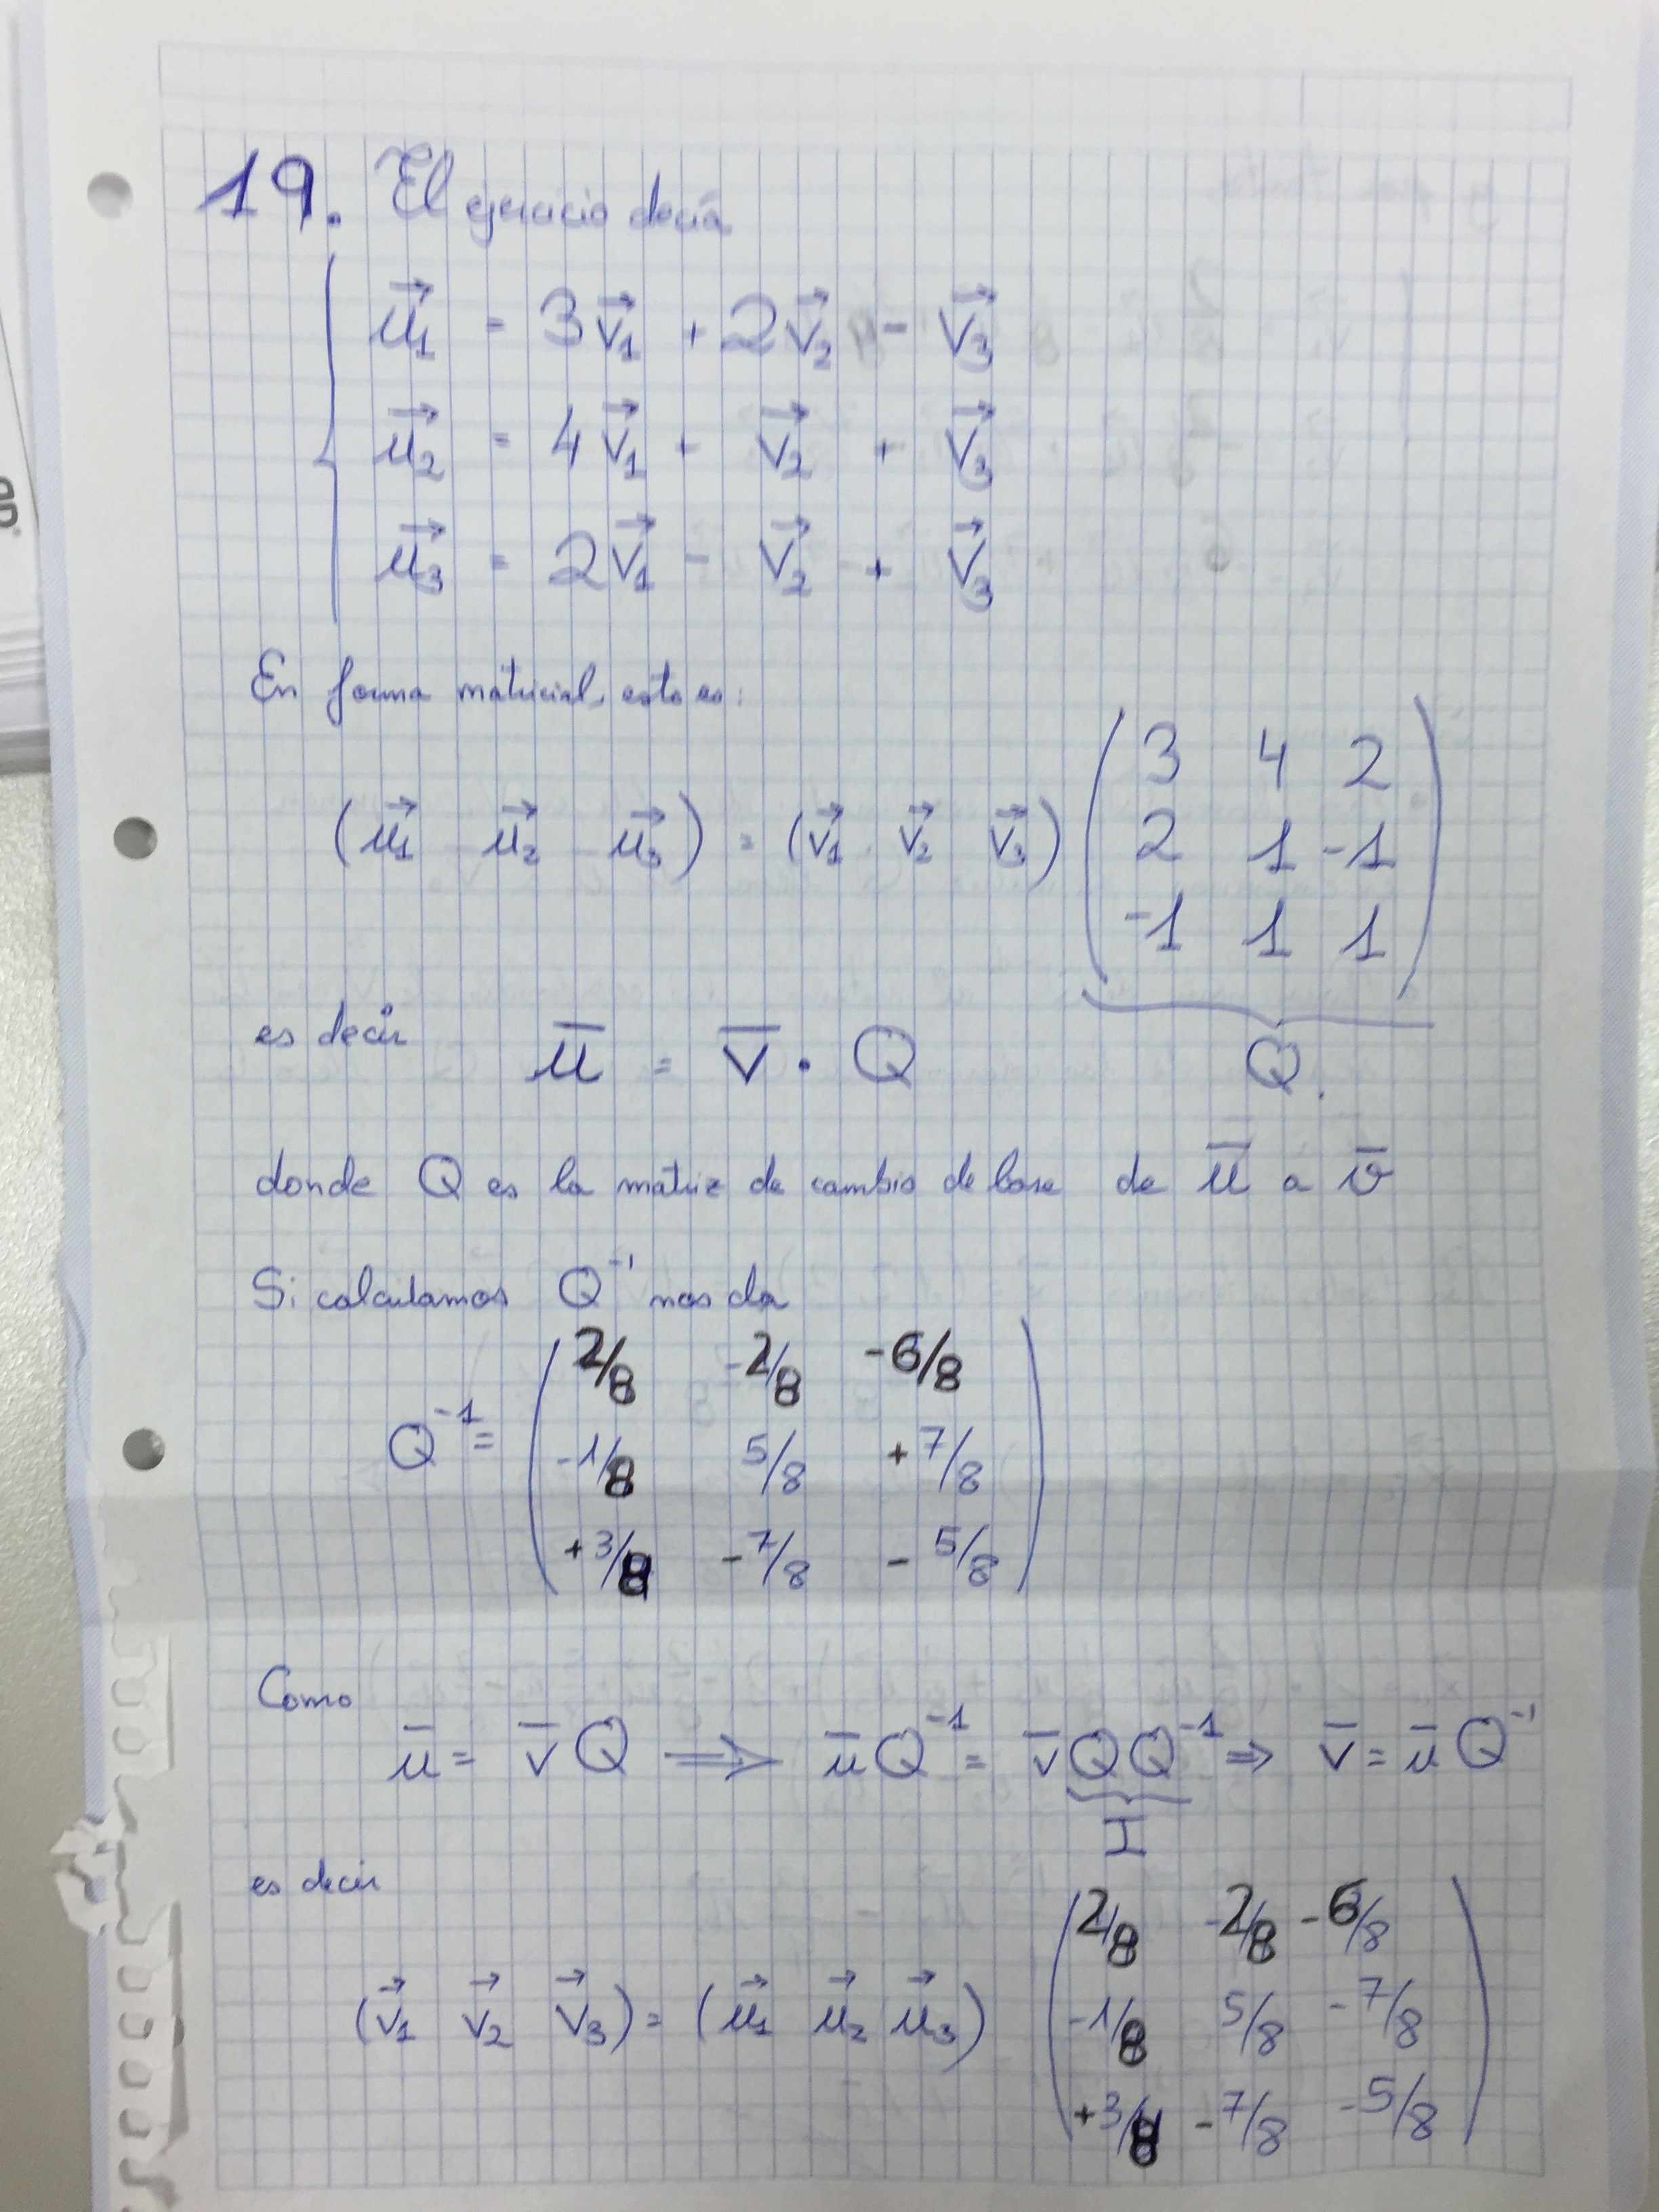 19. El ejercicio decía
u⃗₁ = 3v⃗₁ + 2v⃗₂ - v⃗₃
u⃗₂ = 4v⃗₁ + v⃗₂ + v⃗₃
u⃗₃ = 2v⃗₁ - v⃗₂ + v⃗₃
En forma matricial, esto es:
(u⃗₁ u⃗₂ u⃗₃) = (v⃗₁ v⃗₂ v⃗₃)
3 4 2
2 1 -1
-1 1 1
Q.
es decir ū = v̄ · Q
donde Q es la matriz de cambio de base de ū a v̄
Si calculamos Q⁻¹ nos da
Q⁻¹ =
2/8 -2/8 -6/8
-1/8 5/8 +7/8
+3/8 -7/8 -5/8
Como
ū = v̄Q ⟹ ūQ⁻¹ = v̄QQ⁻¹ ⇒ v̄ = ūQ⁻¹
I
es decir
(v⃗₁ v⃗₂ v⃗₃) = (u⃗₁ u⃗₂ u⃗₃)
2/8 -2/8 -6/8
-1/8 5/8 -7/8
+3/8 -7/8 -5/8